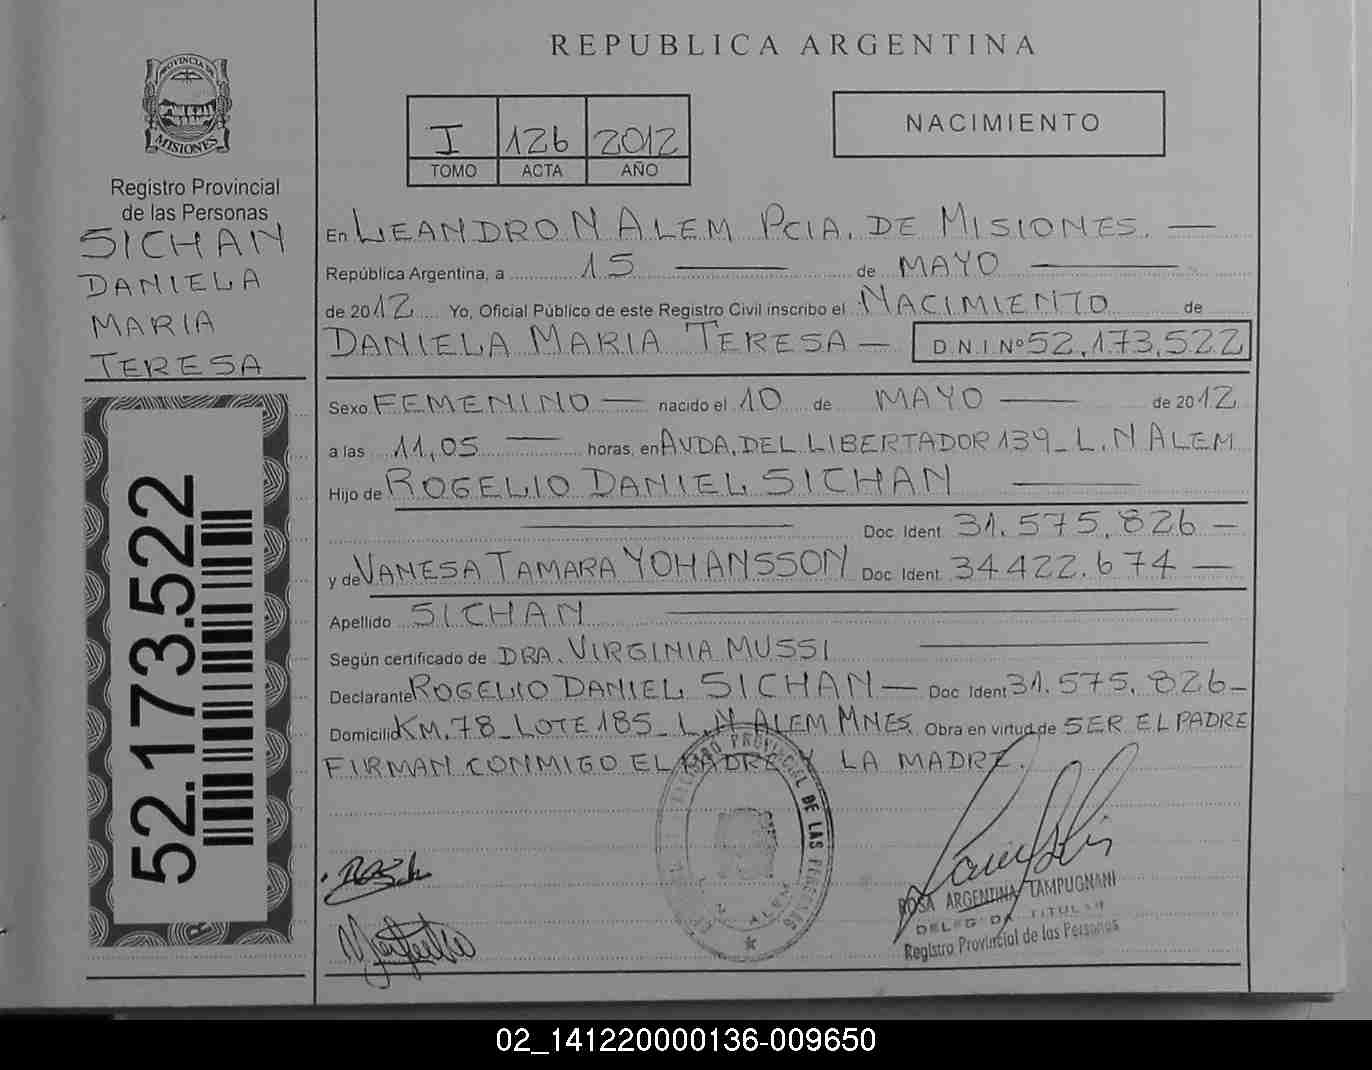 REPUBLICA ARGENTINA
PROVINCIA DE
MISIONES
Registro Provincial
de las Personas
SICHAN
DANIELA
MARIA
TERESA
52.173.522
I 126 2012
TOMO ACTA AÑO
NACIMIENTO
En LEANDRO N ALEM PCIA. DE MISIONES. —
República Argentina, a 15 — de MAYO —
de 2012 Yo, Oficial Público de este Registro Civil inscribo el NACIMIENTO de
DANIELA MARIA TERESA — D.N.I.Nº 52.173.522
Sexo FEMENINO — nacido el 10 de MAYO — de 2012
a las 11,05 — horas, en AVDA. DEL LIBERTADOR 139_ L. N ALEM
Hijo de ROGELIO DANIEL SICHAN —
— Doc Ident 31.575.826 —
y de VANESA TAMARA YOHANSSON Doc Ident 34422.674 —
Apellido SICHAN —
Según certificado de DRA. VIRGINIA MUSSI —
Declarante ROGELIO DANIEL SICHAN — Doc Ident 31.575.826_
Domicilio KM.78_LOTE 185_ L.N ALEM MNES. Obra en virtud de SER EL PADRE
FIRMAN CONMIGO EL PADRE Y LA MADRE.
REGISTRO PROVINCIAL DE LAS PERSONAS
ROSA ARGENTINA LAMPUGNANI
DELEGADA TITULAR
Registro Provincial de las Personas
02_141220000136-009650